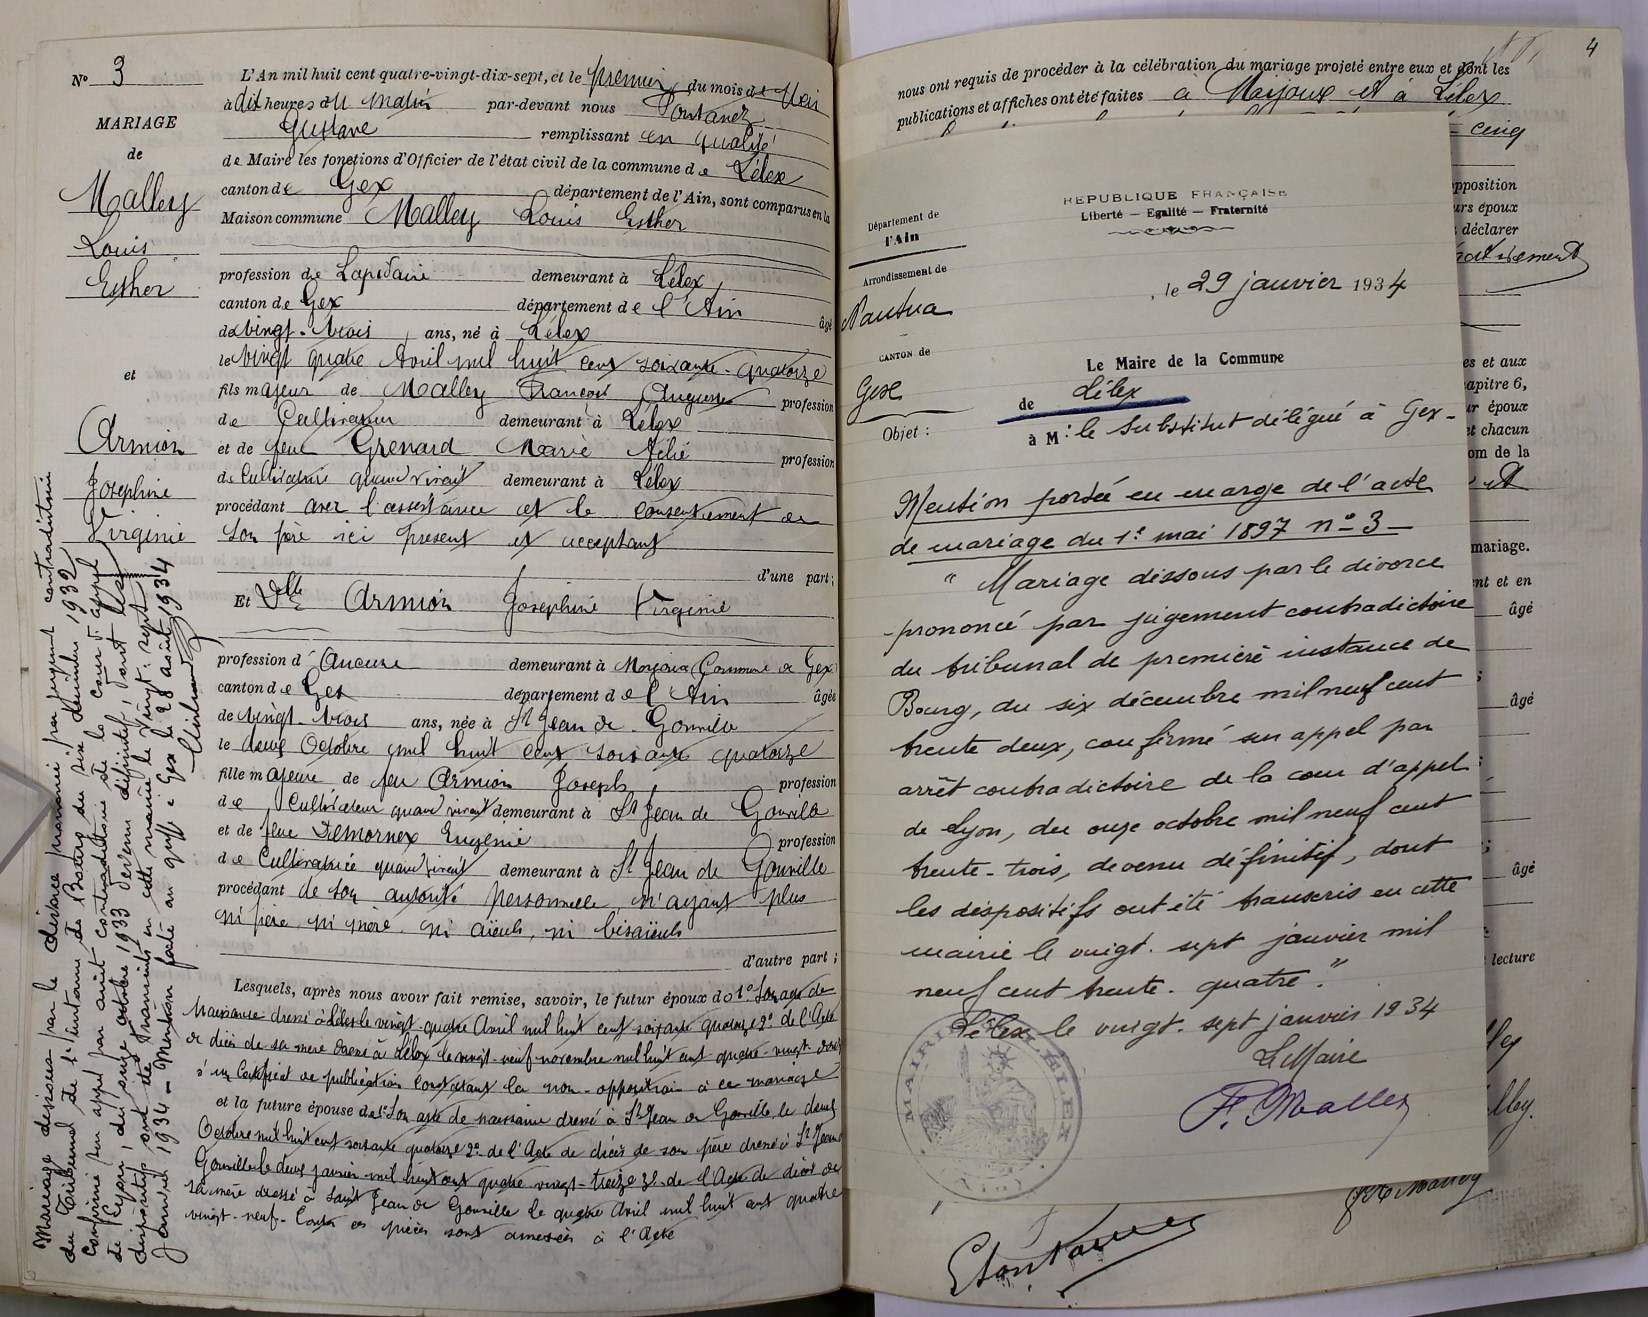 N° 3
MARIAGE
de
Malley
Louis
Esther
et
Armion
Joséphine
Virginie
L'An mil huit cent quatre-vingt-dix-sept, et le premier du mois de Mai
à dix heures du matin par-devant nous Fontanez
Gustave remplissant en qualité
de Maire les fonctions d'Officier de l'état civil de la commune de Lélex
canton de Gex département de l'Ain, sont comparus en la
Maison commune Malley Louis Esther
profession de Lapidaire demeurant à Lélex
canton de Gex département de l'Ain âgé
de vingt-trois ans, né à Lélex
le vingt quatre Avril mil huit cent soixante-quatorze
fils majeur de Malley François Auguste profession
de Cultivateur demeurant à Lélex
et de feue Grenard Marie profession
de Cultivatrice quand vivait demeurant à Lélex
procédant avec l'assistance et le consentement de
son père ici présent et acceptant
d'une part;
Et Delle Armion Joséphine Virginie
profession d'Aucune demeurant à Moyoux Commune de Gex
canton de Gex département de l'Ain âgée
de vingt-trois ans, née à St Jean de Gonville
le deux Octobre mil huit cent soixante quatorze
fille majeure de feu Armion Joseph, profession
de Cultivateur quand vivait demeurant à St Jean de Gonville
et de feue Demornex Eugénie profession
de Cultivatrice quand vivait demeurant à St Jean de Gonville
procédant de son autorité personnelle, n'ayant plus
ni père, ni mère, ni aïeuls, ni bisaïeuls
d'autre part;
Lesquels, après nous avoir fait remise, savoir, le futur époux de 1° Son acte de
Naissance dressé à Lélex le vingt-quatre Avril mil huit cent soixante quatorze 2° de l'Acte
de décès de sa mère dressé à Lélex le vingt-neuf novembre mil huit cent quatre-vingt
d'un Certificat de publication constatant la non-opposition à ce mariage
et la future épouse de 1° Son acte de naissance dressé à St Jean de Gonville le deux
Octobre mil huit cent soixante quatorze 2° de l'Acte de décès de son père dressé à St Jean
Gonville le deux janvier mil huit cent quatre vingt-treize 3° de l'Acte de décès de
sa mère dressé à Saint Jean de Gonville le quatre Avril mil huit cent quatre
vingt-neuf. Toutes ces pièces sont annexées à l'Acte
Mariage dissous par le divorce prononcé par jugement contradictoire
du Tribunal de 1re instance de Bourg du six décembre 1932
Confirmé sur appel par arrêt contradictoire de la cour d'appel
de Lyon, du onze octobre 1933 devenu définitif, dont les
dispositifs ont été transcrits en cette mairie le vingt-sept
Janvier 1934 - Mention faite au greffe à Gex le 28 août 1934
4
nous ont requis de procéder à la célébration du mariage projeté entre eux et dont les
publications et affiches ont été faites à Moyoux et à Lélex
cinq
pposition
urs époux
déclarer
es et aux
apitre 6,
ur époux
et chacun
om de la
et
mariage.
nt et en
âgé
âgé
âgé
lecture
REPUBLIQUE FRANÇAISE
Liberté — Egalité — Fraternité
Département de
l'Ain
Arrondissement de
Nantua
CANTON de
Gex
Objet :
, le 29 janvier 1934
Le Maire de la Commune
de Lélex
à M: le Substitut délégué à Gex-
Mention portée en marge de l'acte
de mariage du 1er mai 1897 n° 3 —
" Mariage dissous par le divorce
prononcé par jugement contradictoire
du tribunal de première instance de
Bourg, du six décembre mil neuf cent
trente deux, confirmé sur appel par
arrêt contradictoire de la cour d'appel
de Lyon, du onze octobre mil neuf cent
trente-trois, devenu définitif, dont
les dispositifs ont été transcris en cette
mairie le vingt-sept janvier mil
neuf cent trente-quatre."
Lélex le vingt-sept janvier 1934
Le Maire
F. Malley
MAIRIE DE LELEX
(AIN)